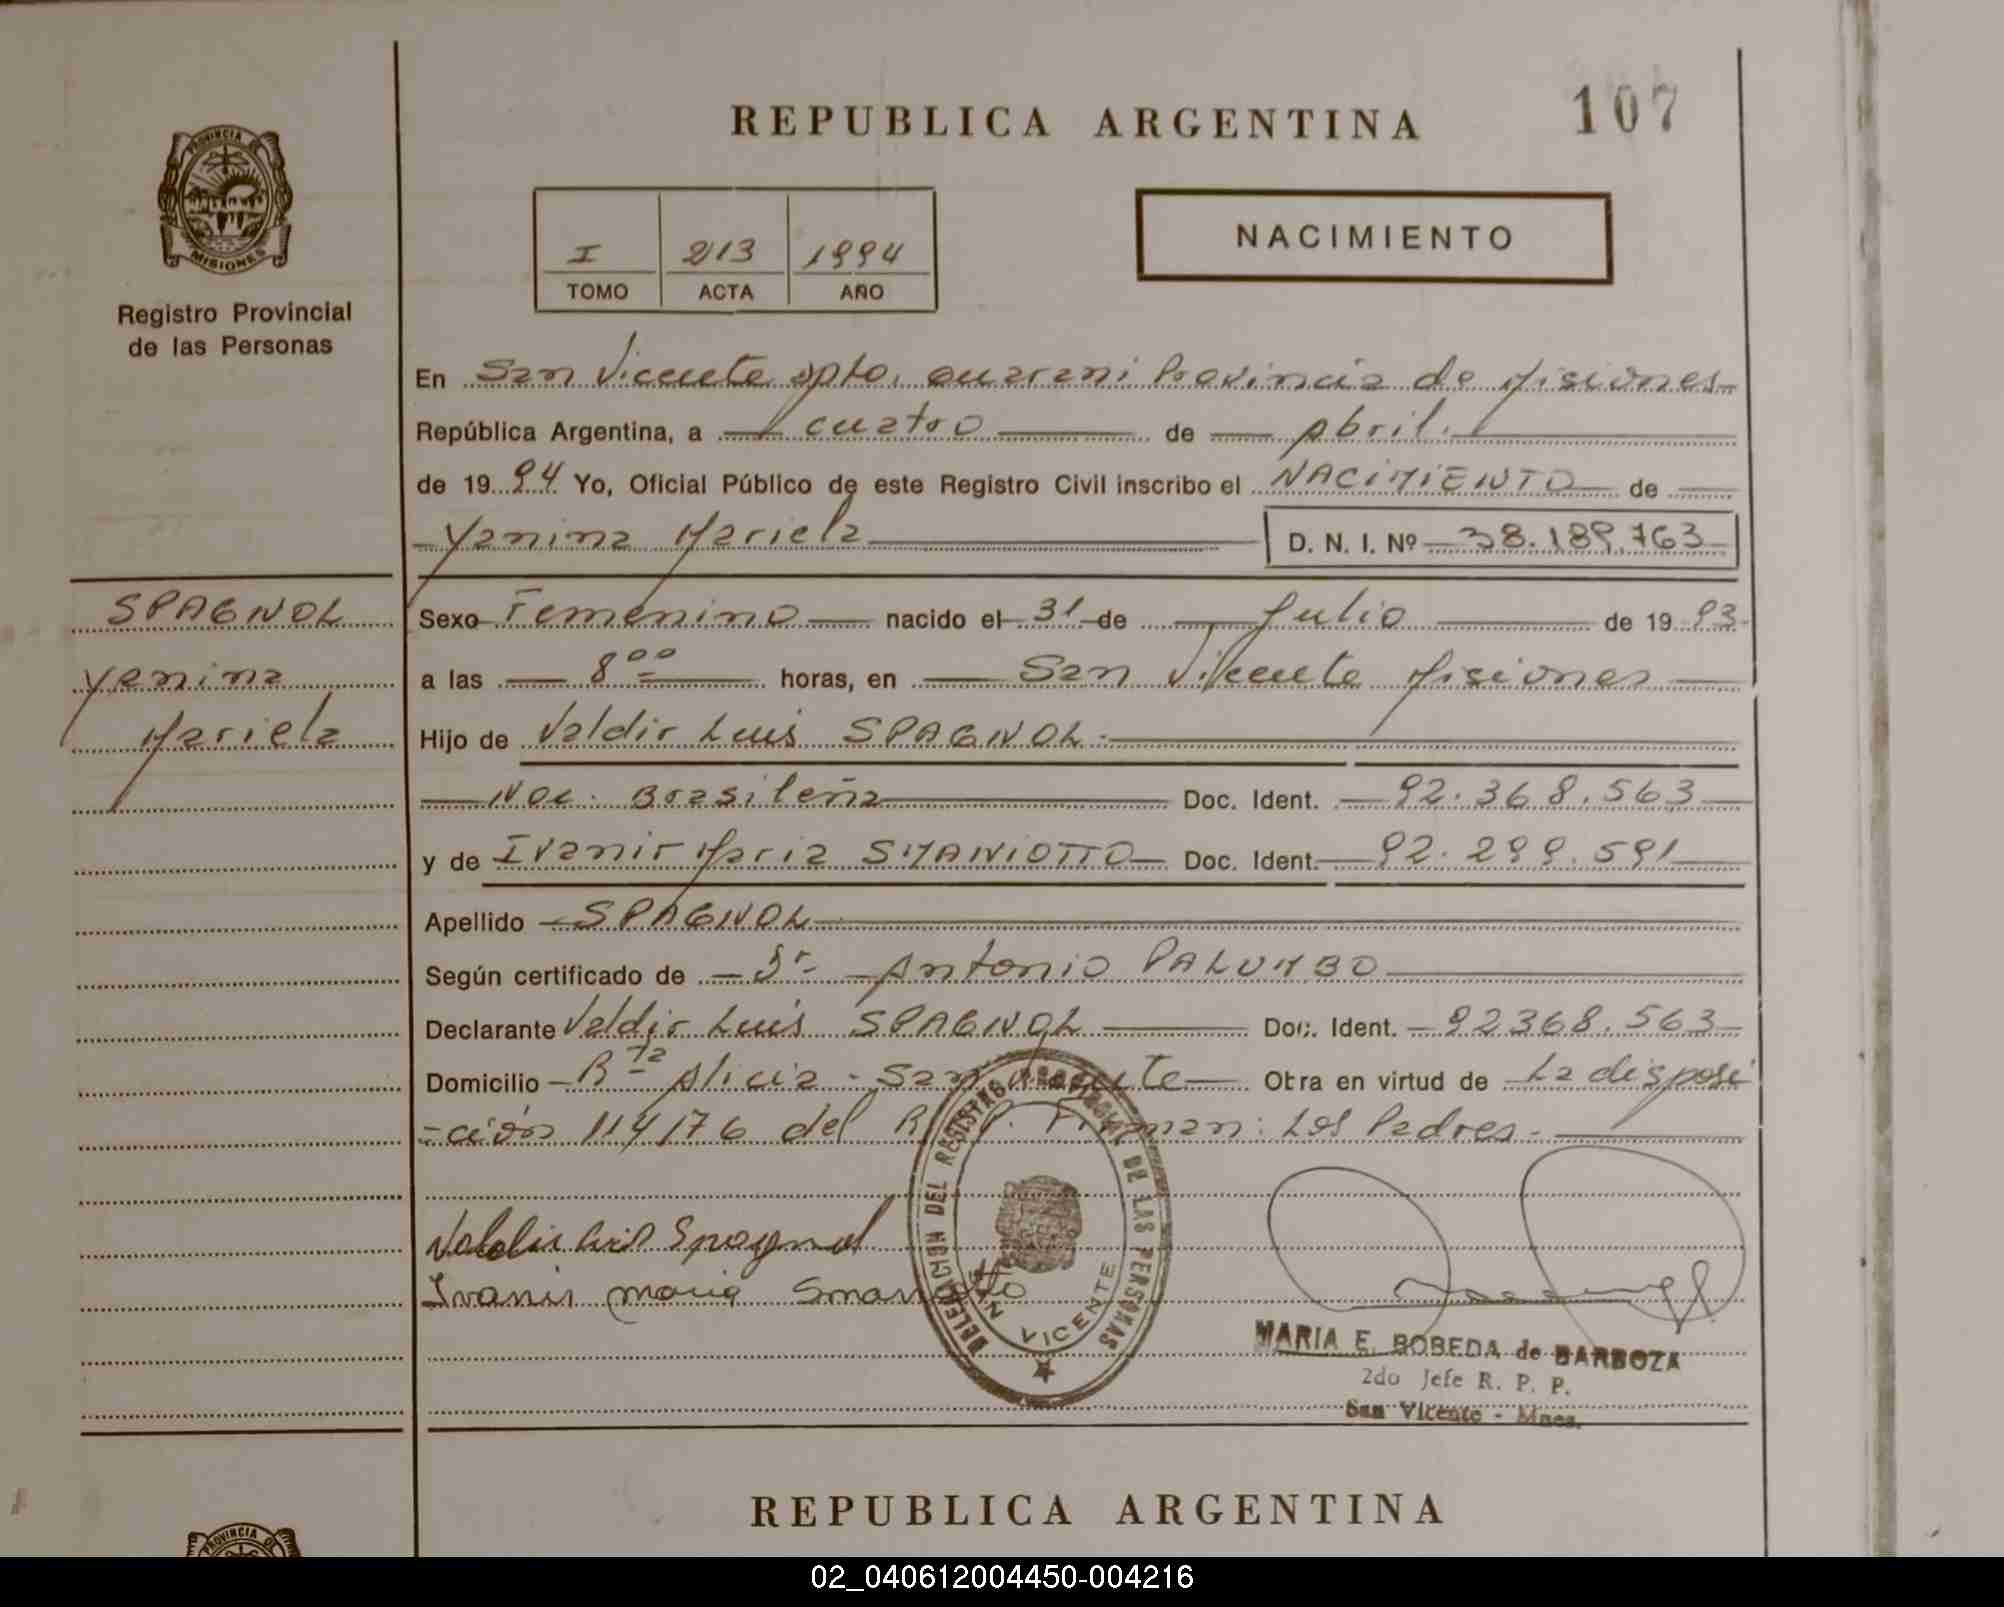 REPUBLICA ARGENTINA
107
PROVINCIA DE
MISIONES
Registro Provincial
de las Personas
I 213 1994
TOMO ACTA AÑO
NACIMIENTO
En San Vicente Dpto. Guarani Provincia de Misiones
República Argentina, a cuatro de Abril.
de 1994 Yo, Oficial Público de este Registro Civil inscribo el NACIMIENTO de
Yanina Mariela D. N. I. Nº 38.189.763
SPAGNOL
Yanina
Mariela
Sexo Femenino nacido el 31 de Julio de 1993
a las 8 ºº horas, en San Vicente Misiones
Hijo de Valdir Luis SPAGNOL.
Nac. Brasileña Doc. Ident. 92.368.563
y de Ivanir Maria SMANIOTTO Doc. Ident. 92.299.591
Apellido SPAGNOL
Según certificado de Dr. Antonio PALUMBO
Declarante Valdir Luis SPAGNOL Doc. Ident. 92368.563
Domicilio Rta Alicia - San Vicente Otra en virtud de La disposi
-ción 114/76 del R. P. Firman: Los Padres.
Valdir Luis Spagnol
Ivanir maria Smaniotto
DELEGACION DEL REGISTRO PROVINCIAL DE LAS PERSONAS
SAN VICENTE
MARIA E. BOBEDA de BARBOZA
2do Jefe R. P. P.
San Vicente - Mnes.
REPUBLICA ARGENTINA
PROVINCIA DE
02_040612004450-004216